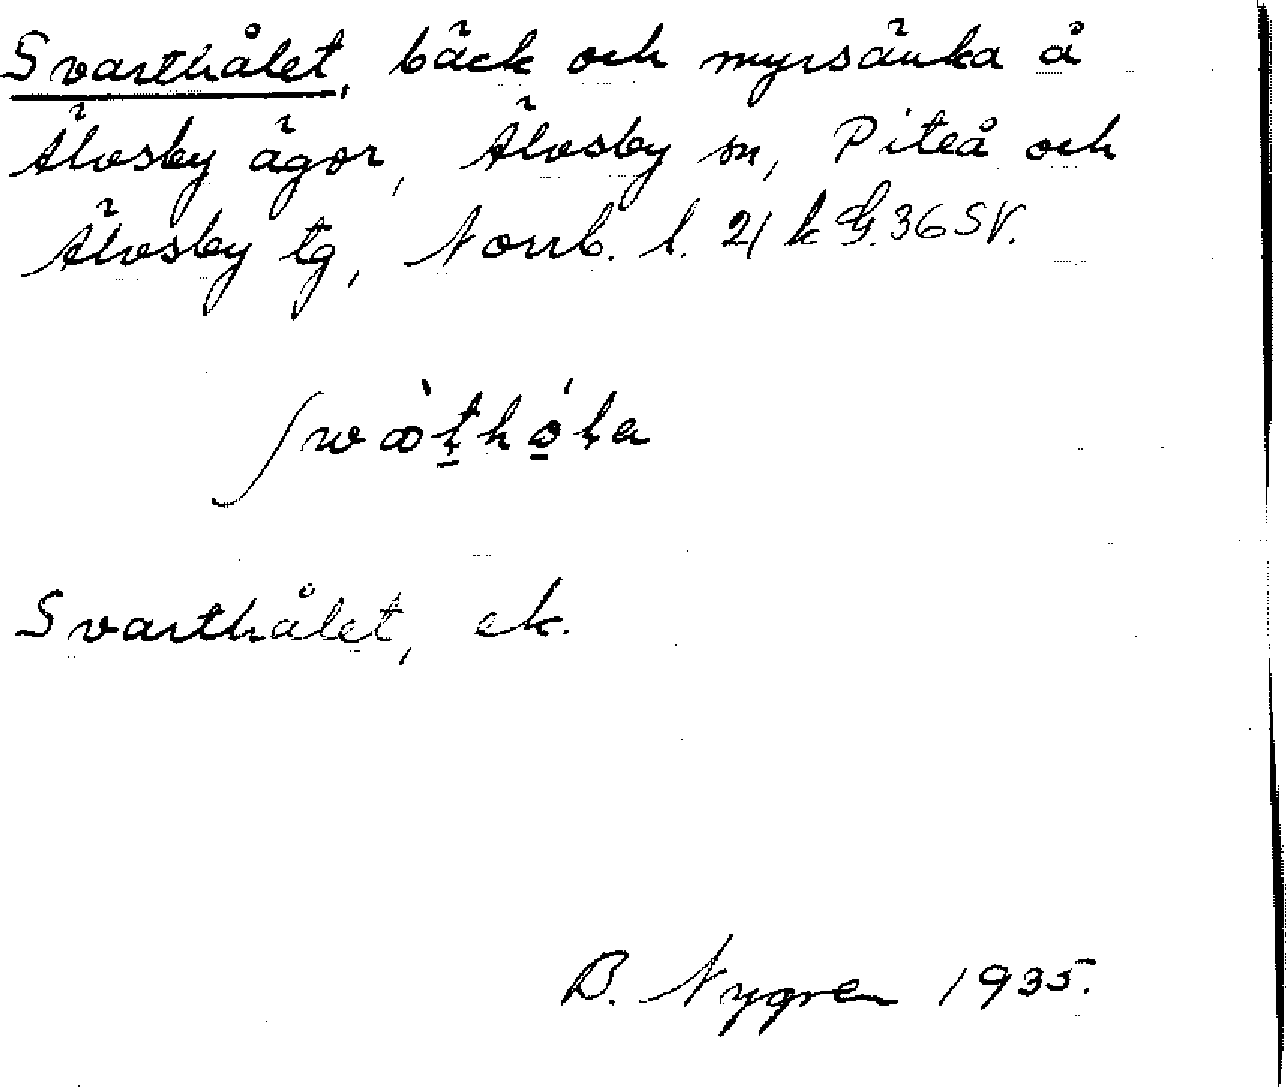 Svarthålet, bäck och myrsänka å
Älvsby ägor, Älvsby sn, Piteå och
Älvsby tg, Norrb. l. 21 k G. 36 SV.
Svarthålet, ek.
B. Nygren 1935.